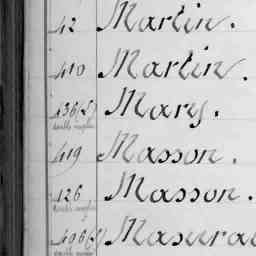 42 Martin.
410 Martin.
436(S) Mary.
419 Masson.
126 Masson.
406(S)